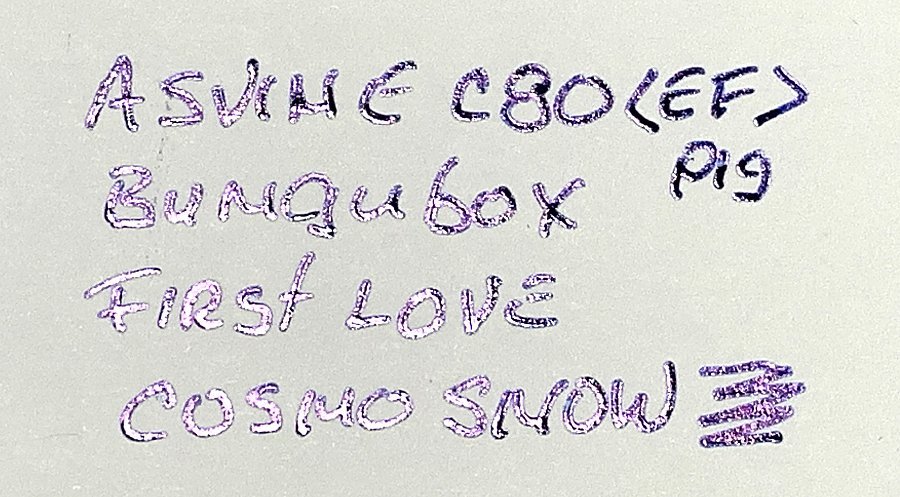 ASVINE C80 <EF>
Pig
Bungubox
FIRST LOVE
COSMO SNOW